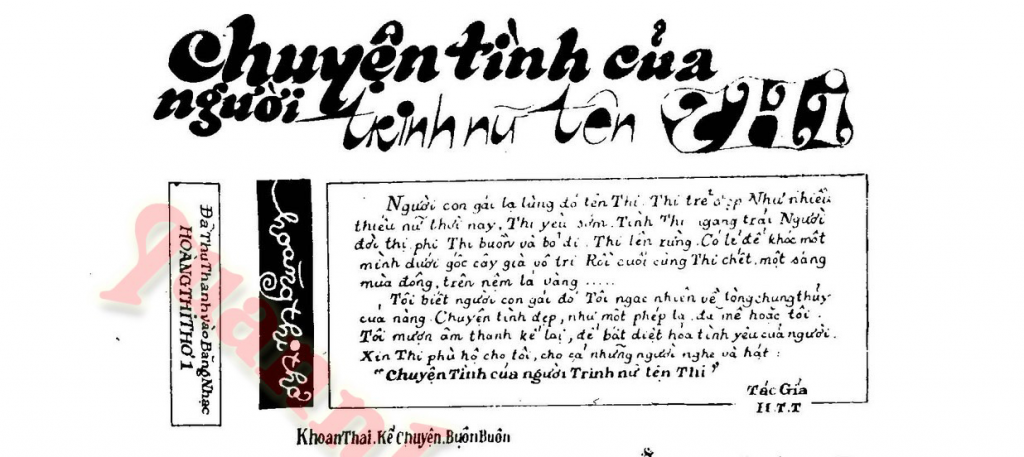 Chuyện tình của
người trinh nữ tên Thi
Đã Thu Thanh vào Băng Nhạc
HOÀNG THI THƠ 1
hoàng thi thơ
Người con gái lạ lùng đó tên Thi. Thi trẻ đẹp Như nhiều
thiếu nữ thời nay, Thi yêu sớm. Tình Thi ngang trái Người
đời thị phi Thi buồn và bỏ đi. Thi lên rừng. Có lẽ để khóc một
mình dưới gốc cây già vô tri Rồi cuối cùng Thi chết, một sáng
mùa đông, trên nệm lá vàng .....
Tôi biết người con gái đó Tôi ngạc nhiên về lòng chung thủy
của nàng. Chuyện tình đẹp, như một phép lạ, đã mê hoặc tôi.
Tôi mượn âm thanh kể lại, để bất diệt hóa tình yêu của người.
Xin Thi phù hộ cho tôi, cho cả những người nghe và hát:
"Chuyện Tình của người Trinh nữ tên Thi"
Tác Giả
H.T.T
Khoan Thai. Kể Chuyện. Buồn Buồn